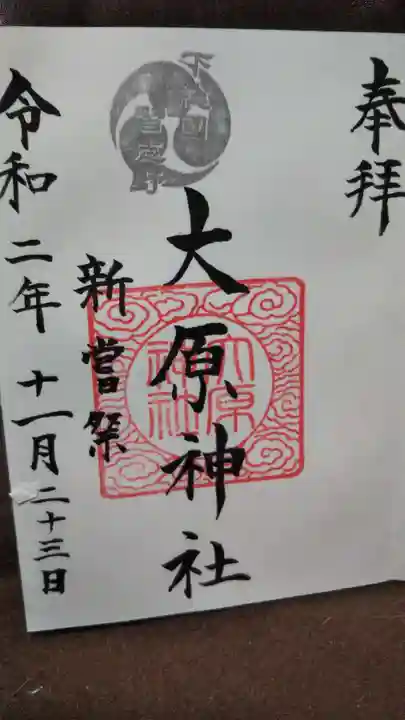 奉拝
下総國
習志野
大原神社
大原
神社
新嘗祭
令和二年十一月二十三日